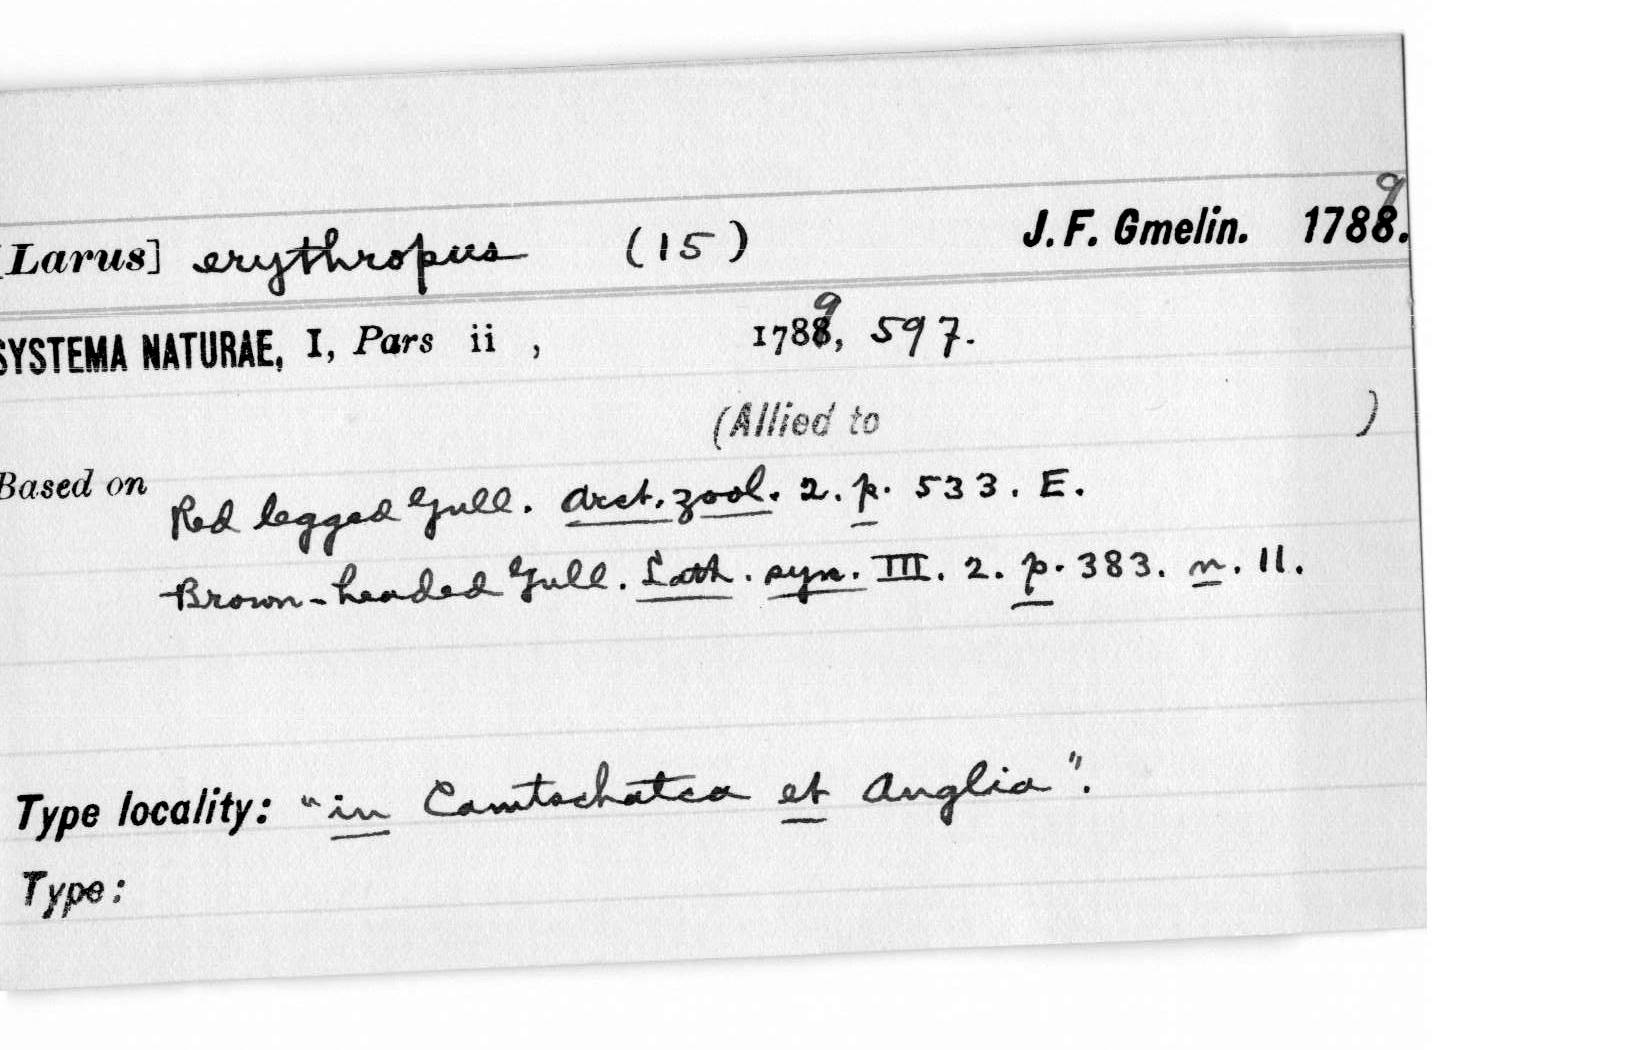 [Larus] erythropus (15) J. F. Gmelin. 1788. 9
SYSTEMA NATURAE, I, Pars ii , 1788, 9 597.
(Allied to )
Based on Red legged Gull. Arct. zool. 2. p. 533. E.
Brown-headed Gull. Lath. syn. III. 2. p. 383. n. 11.
Type locality: "in Camtschatca et Anglia".
Type: